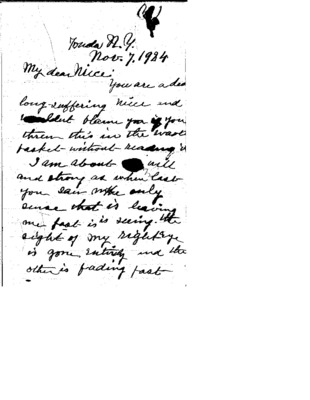 Fonda N.Y.
Nov. 7, 1924
My dear Niece:
You are a dea
long-suffering niece and
wouldnt blame you if you
threw this in the waste
basket without reading it
I am about well
and strong as when last
you saw me only
sense that is leaving
me fast is seeing. the
sight of my right eye
is gone entirely and the
other is fading fast